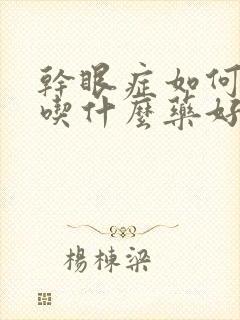 幹眼症如何
喫什麼藥好
楊棟梁